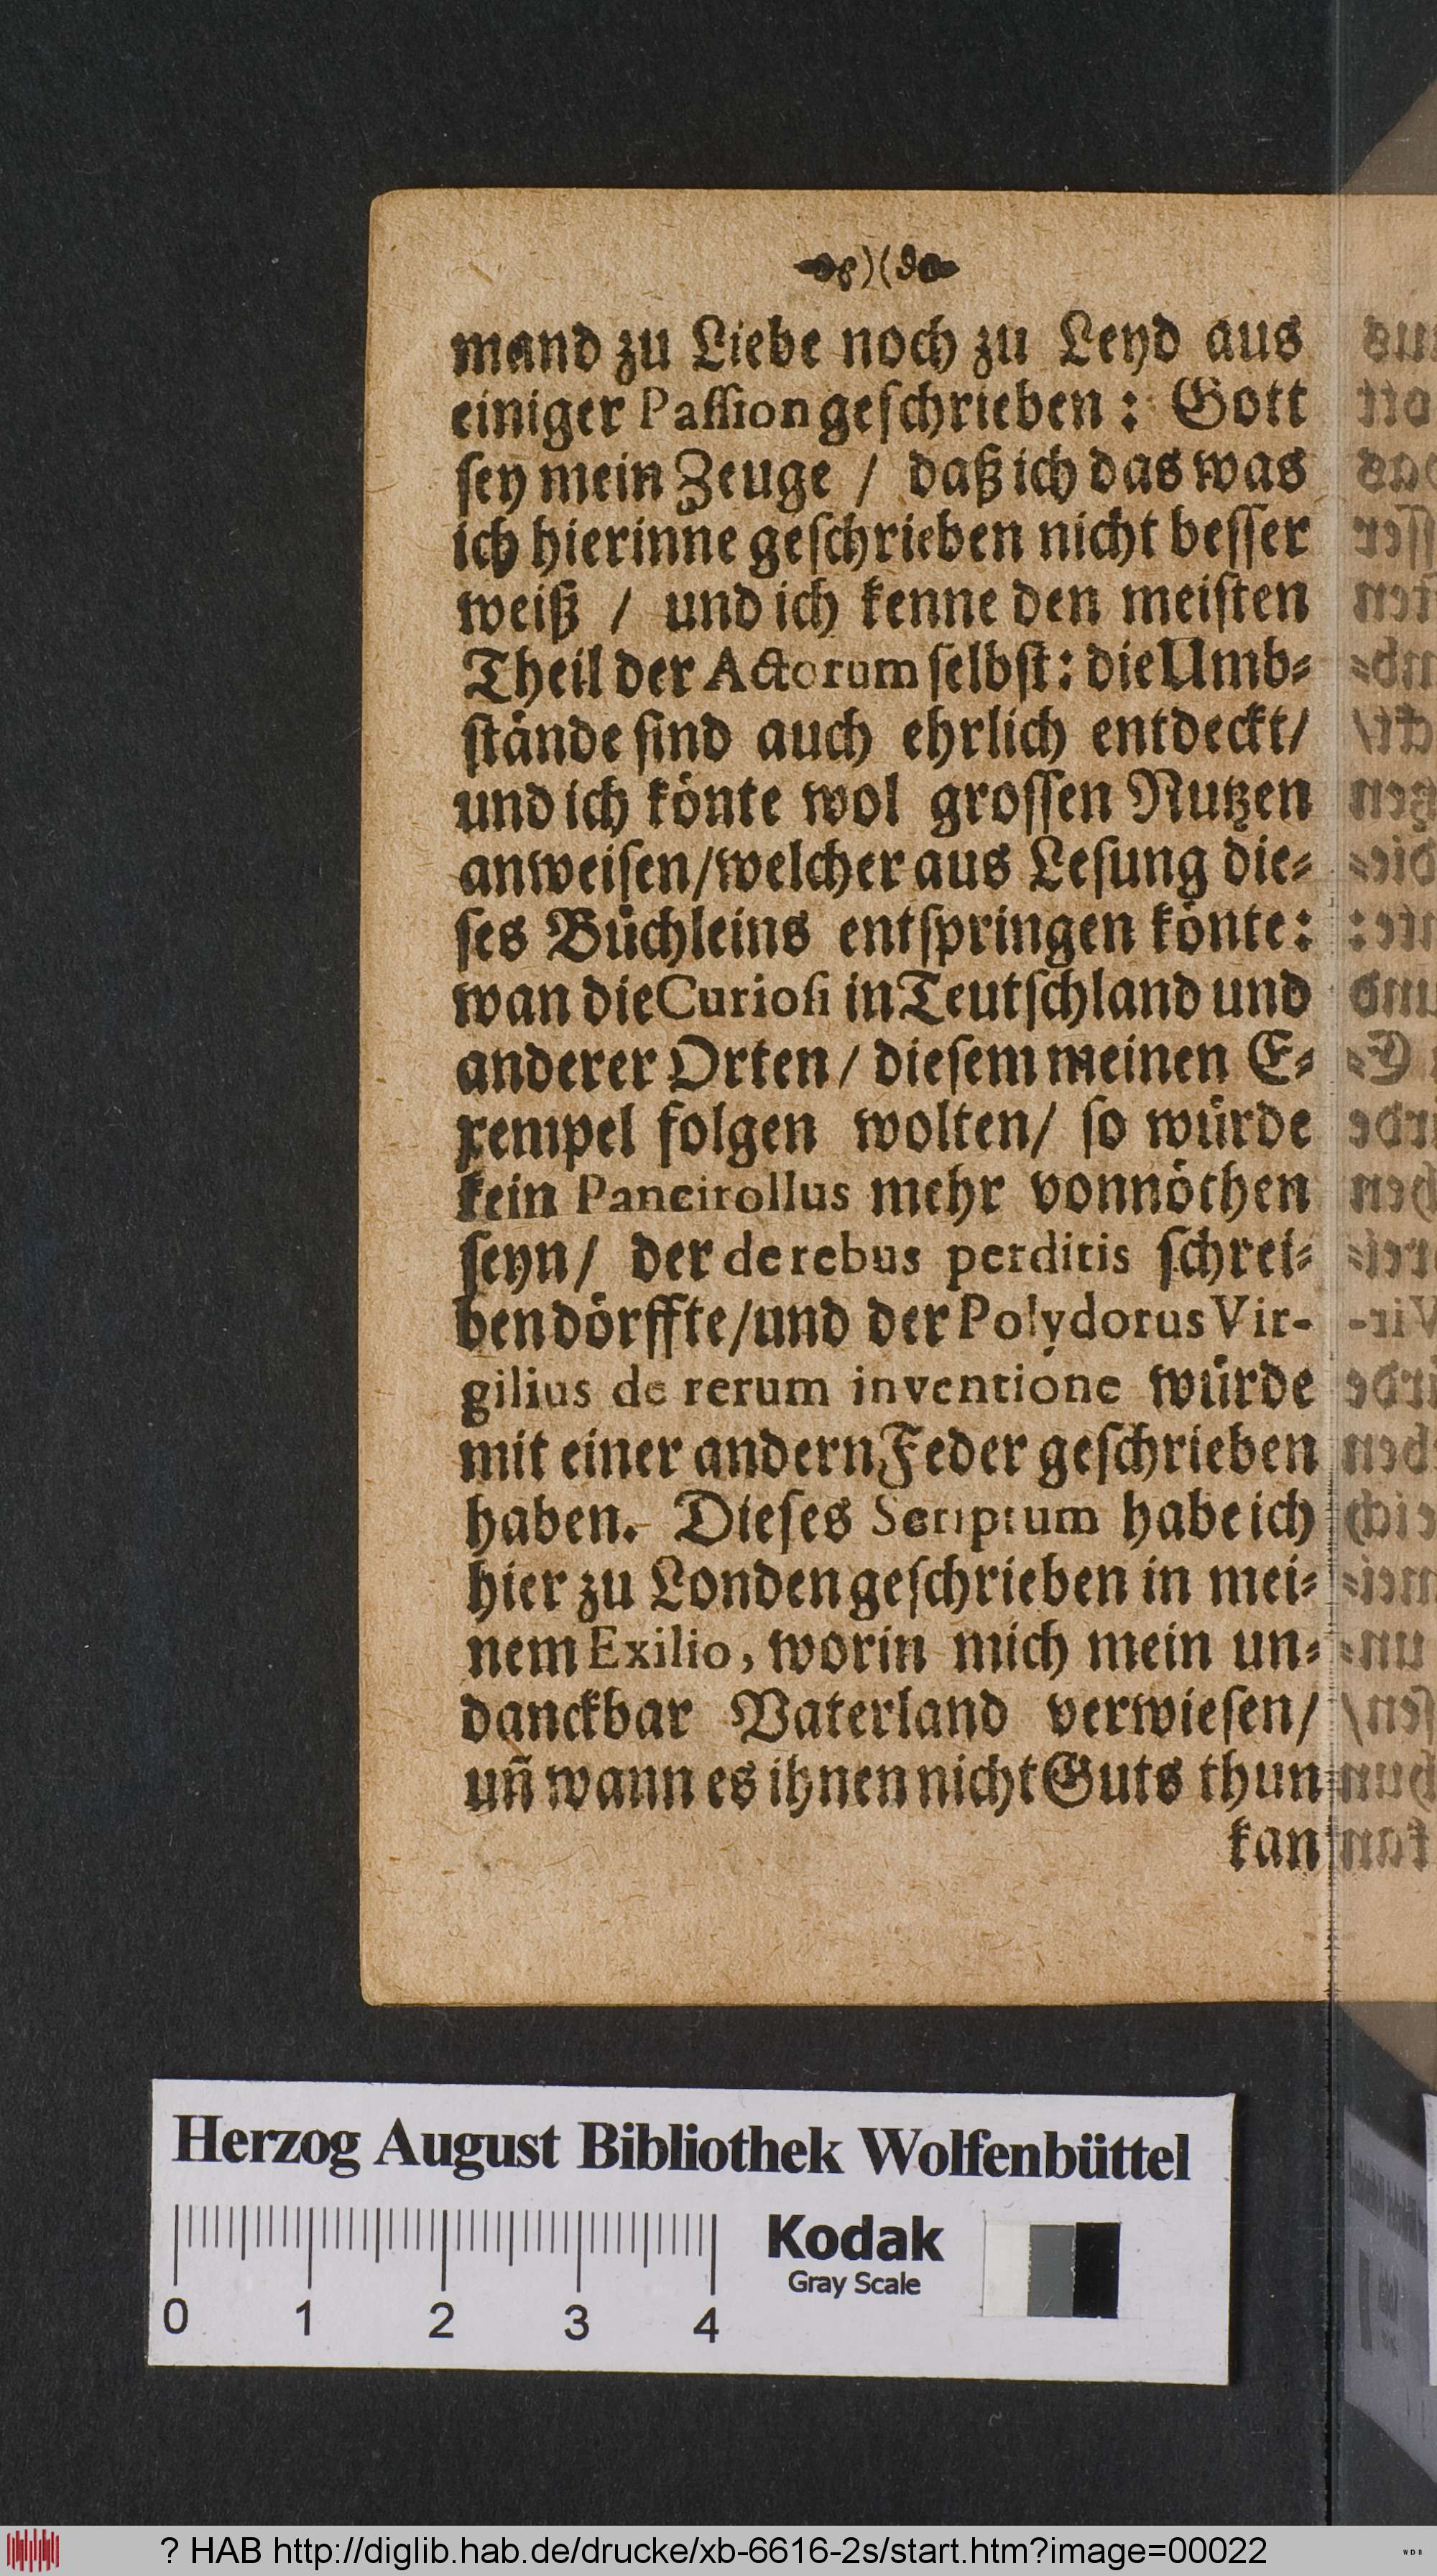 mand zu Liebe noch zu Leyd aus
einiger Paſſion geſchrieben: Gott
ſey mein Zeuge / daß ich das was
ich hierinne geſchrieben nicht beſſer
weiß / und ich kenne den meiſten
Theil der Actorum ſelbſt: die Umb⸗
ſtände ſind auch ehrlich entdeckt/
und ich könte wol groſſen Nutzen
anweiſen/welcher aus Leſung die⸗
ſes Büchleins entſpringen könte:
wan die Curioſi in Teutſchland und
anderer Orten/ dieſem meinen E⸗
xempel folgen wolten/ ſo würde
kein Pancirollus mehr vonnöthen
ſeyn/ der de rebus perditis ſchrei⸗
ben dörffte/und der Polydorus Vir-
gilius de rerum inventione würde
mit einer andern Feder geſchrieben
haben. Dieſes Scriptum habe ich
hier zu Londen geſchrieben in mei⸗
nem Exilio, worin mich mein un⸗
danckbar Vaterland verwieſen/
uñ wann es ihnen nicht Guts thun
kan
Herzog August Bibliothek Wolfenbüttel
Kodak
Gray Scale
0 1 2 3 4
? HAB http://diglib.hab.de/drucke/xb-6616-2s/start.htm?image=00022